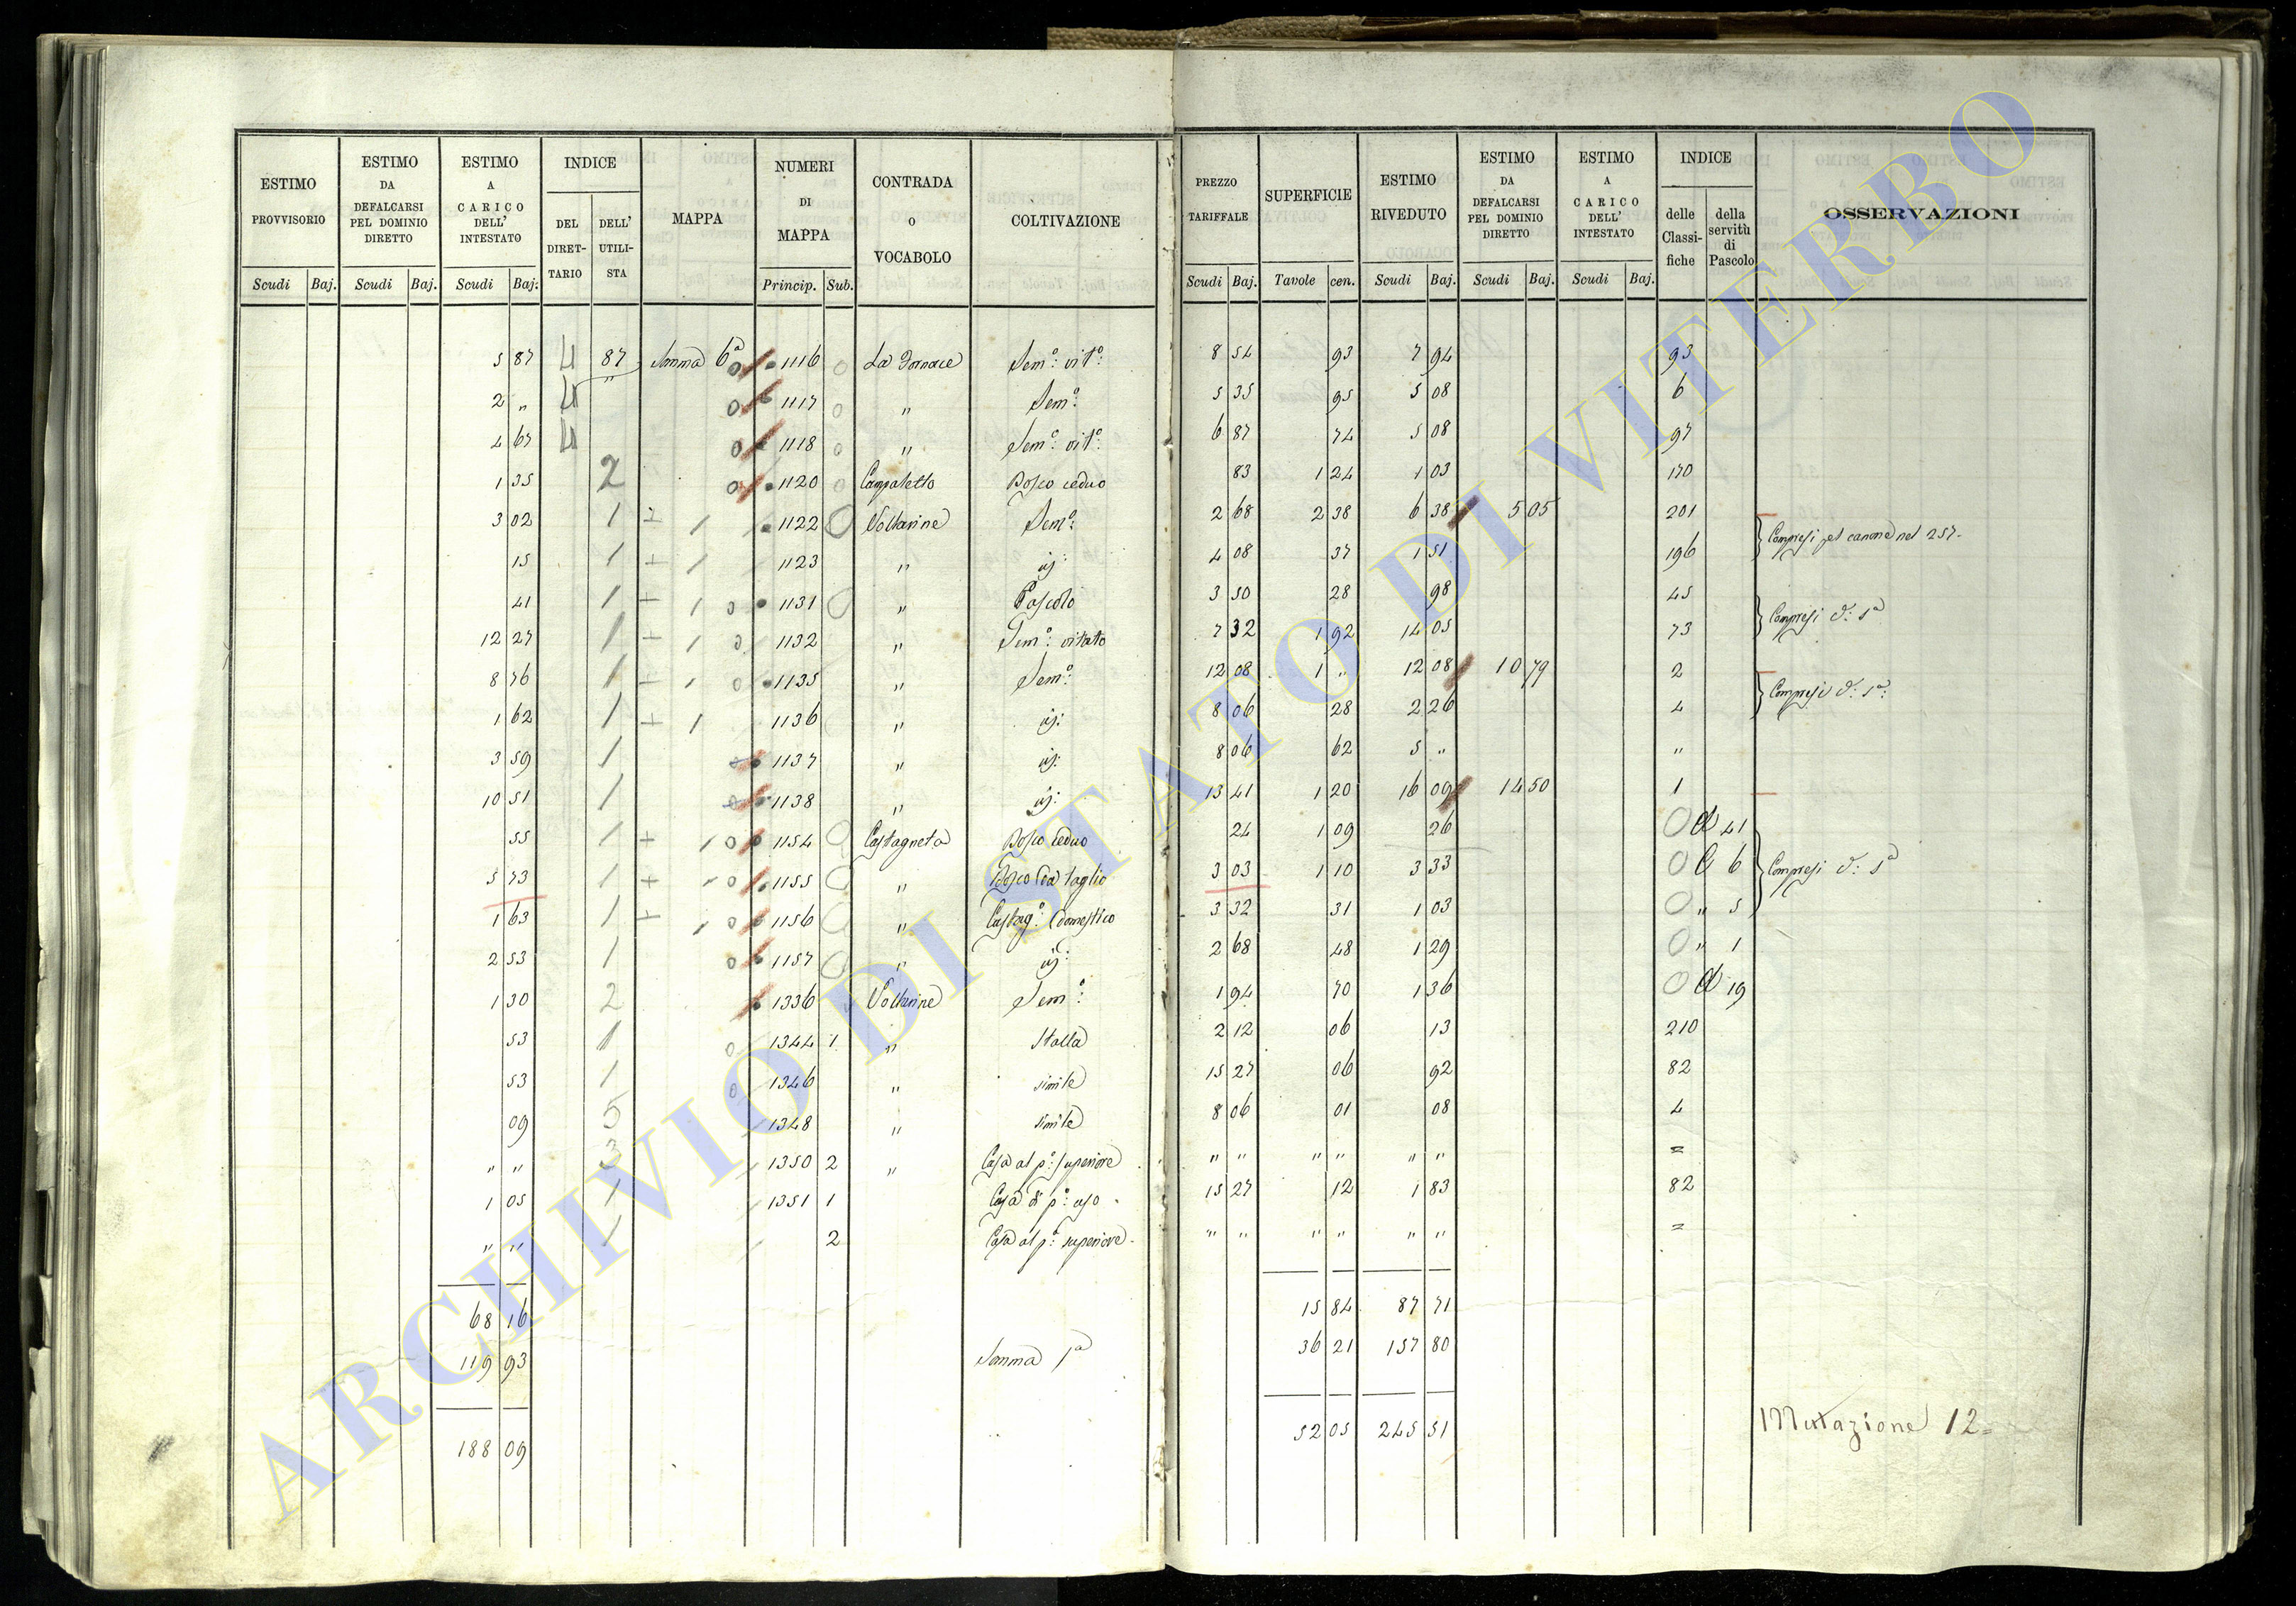 ESTIMO PROVVISORIO Scudi Baj.
ESTIMO DA DEFALCARSI PEL DOMINIO DIRETTO Scudi Baj.
ESTIMO A CARICO DELL' INTESTATO Scudi Baj.
INDICE DEL DIRETTARIO DELL' UTILISTA
MAPPA
NUMERI DI MAPPA Princip. Sub.
CONTRADA O VOCABOLO
COLTIVAZIONE
PREZZO TARIFFALE Scudi Baj.
SUPERFICIE Tavole cen.
ESTIMO RIVEDUTO Scudi Baj.
ESTIMO DA DEFALCARSI PEL DOMINIO DIRETTO Scudi Baj.
ESTIMO A CARICO DELL' INTESTATO Scudi Baj.
INDICE delle Classifiche della servitù di Pascolo
OSSERVAZIONI
5 87 U 87 Somma 6a 0 1116 0 La Fornace Semo: vito: 8 54 93 7 94 93
2 " U " 0 1117 0 " Semo: 5 35 95 5 08 6
4 67 U 0 1118 0 " Semo: vito: 6 87 74 5 08 97
1 35 2 0 1120 0 Campaletto Bosco ceduo 83 1 24 1 03 170
3 02 1 + 1 1122 0 Voltarine Semo: 2 68 2 38 6 38 5 05 201 Compresi pel canone nel 257.
15 1 + 1 1123 " id: 4 08 37 1 51 196
41 1 + 1 0 1131 0 " Pascolo 3 50 28 98 45 Compresi d: sa
12 27 1 + 1 0 1132 " Semo: vitato 7 32 1 92 14 05 73
8 76 1 + 1 0 1135 " Semo: 12 08 1 " 12 08 10 79 2 Compresi d: sa:
1 62 1 + 1 1136 " id: 8 06 28 2 26 4
3 59 1 1137 " id: 8 06 62 5 " "
10 51 1 0 1138 " id: 13 41 1 20 16 09 14 50 1
55 1 + 1 0 1154 0 Castagneta Bosco ceduo 24 1 09 26 0 d 41 Compresi d: sa
5 73 1 + 1 0 1155 0 " Bosco da taglio 3 03 1 10 3 33 0 C 6
1 63 1 + 1 0 1156 0 " Castago: domestico 3 32 31 1 03 0 " 5
2 53 1 0 1157 0 " id: 2 68 48 1 29 0 " 1
1 30 2 1336 Voltarine Semo: 1 94 70 1 36 0 d 19
53 1 0 1344 1 " Stalla 2 12 06 13 210
53 1 0 1346 " simile 15 27 06 92 82
09 5 1348 " simile 8 06 01 08 4
" " 3 1350 2 " Casa al po: superiore " " " " " " =
1 05 1 1351 1 Casa di po: uso 15 27 12 1 83 82
" " 1 2 Casa al po: superiore " " " " " " =
68 16 15 84 87 71
119 93 Somma 1a 36 21 157 80
188 09 52 05 245 51
Mutazione 12=
ARCHIVIO DI STATO DI VITERBO